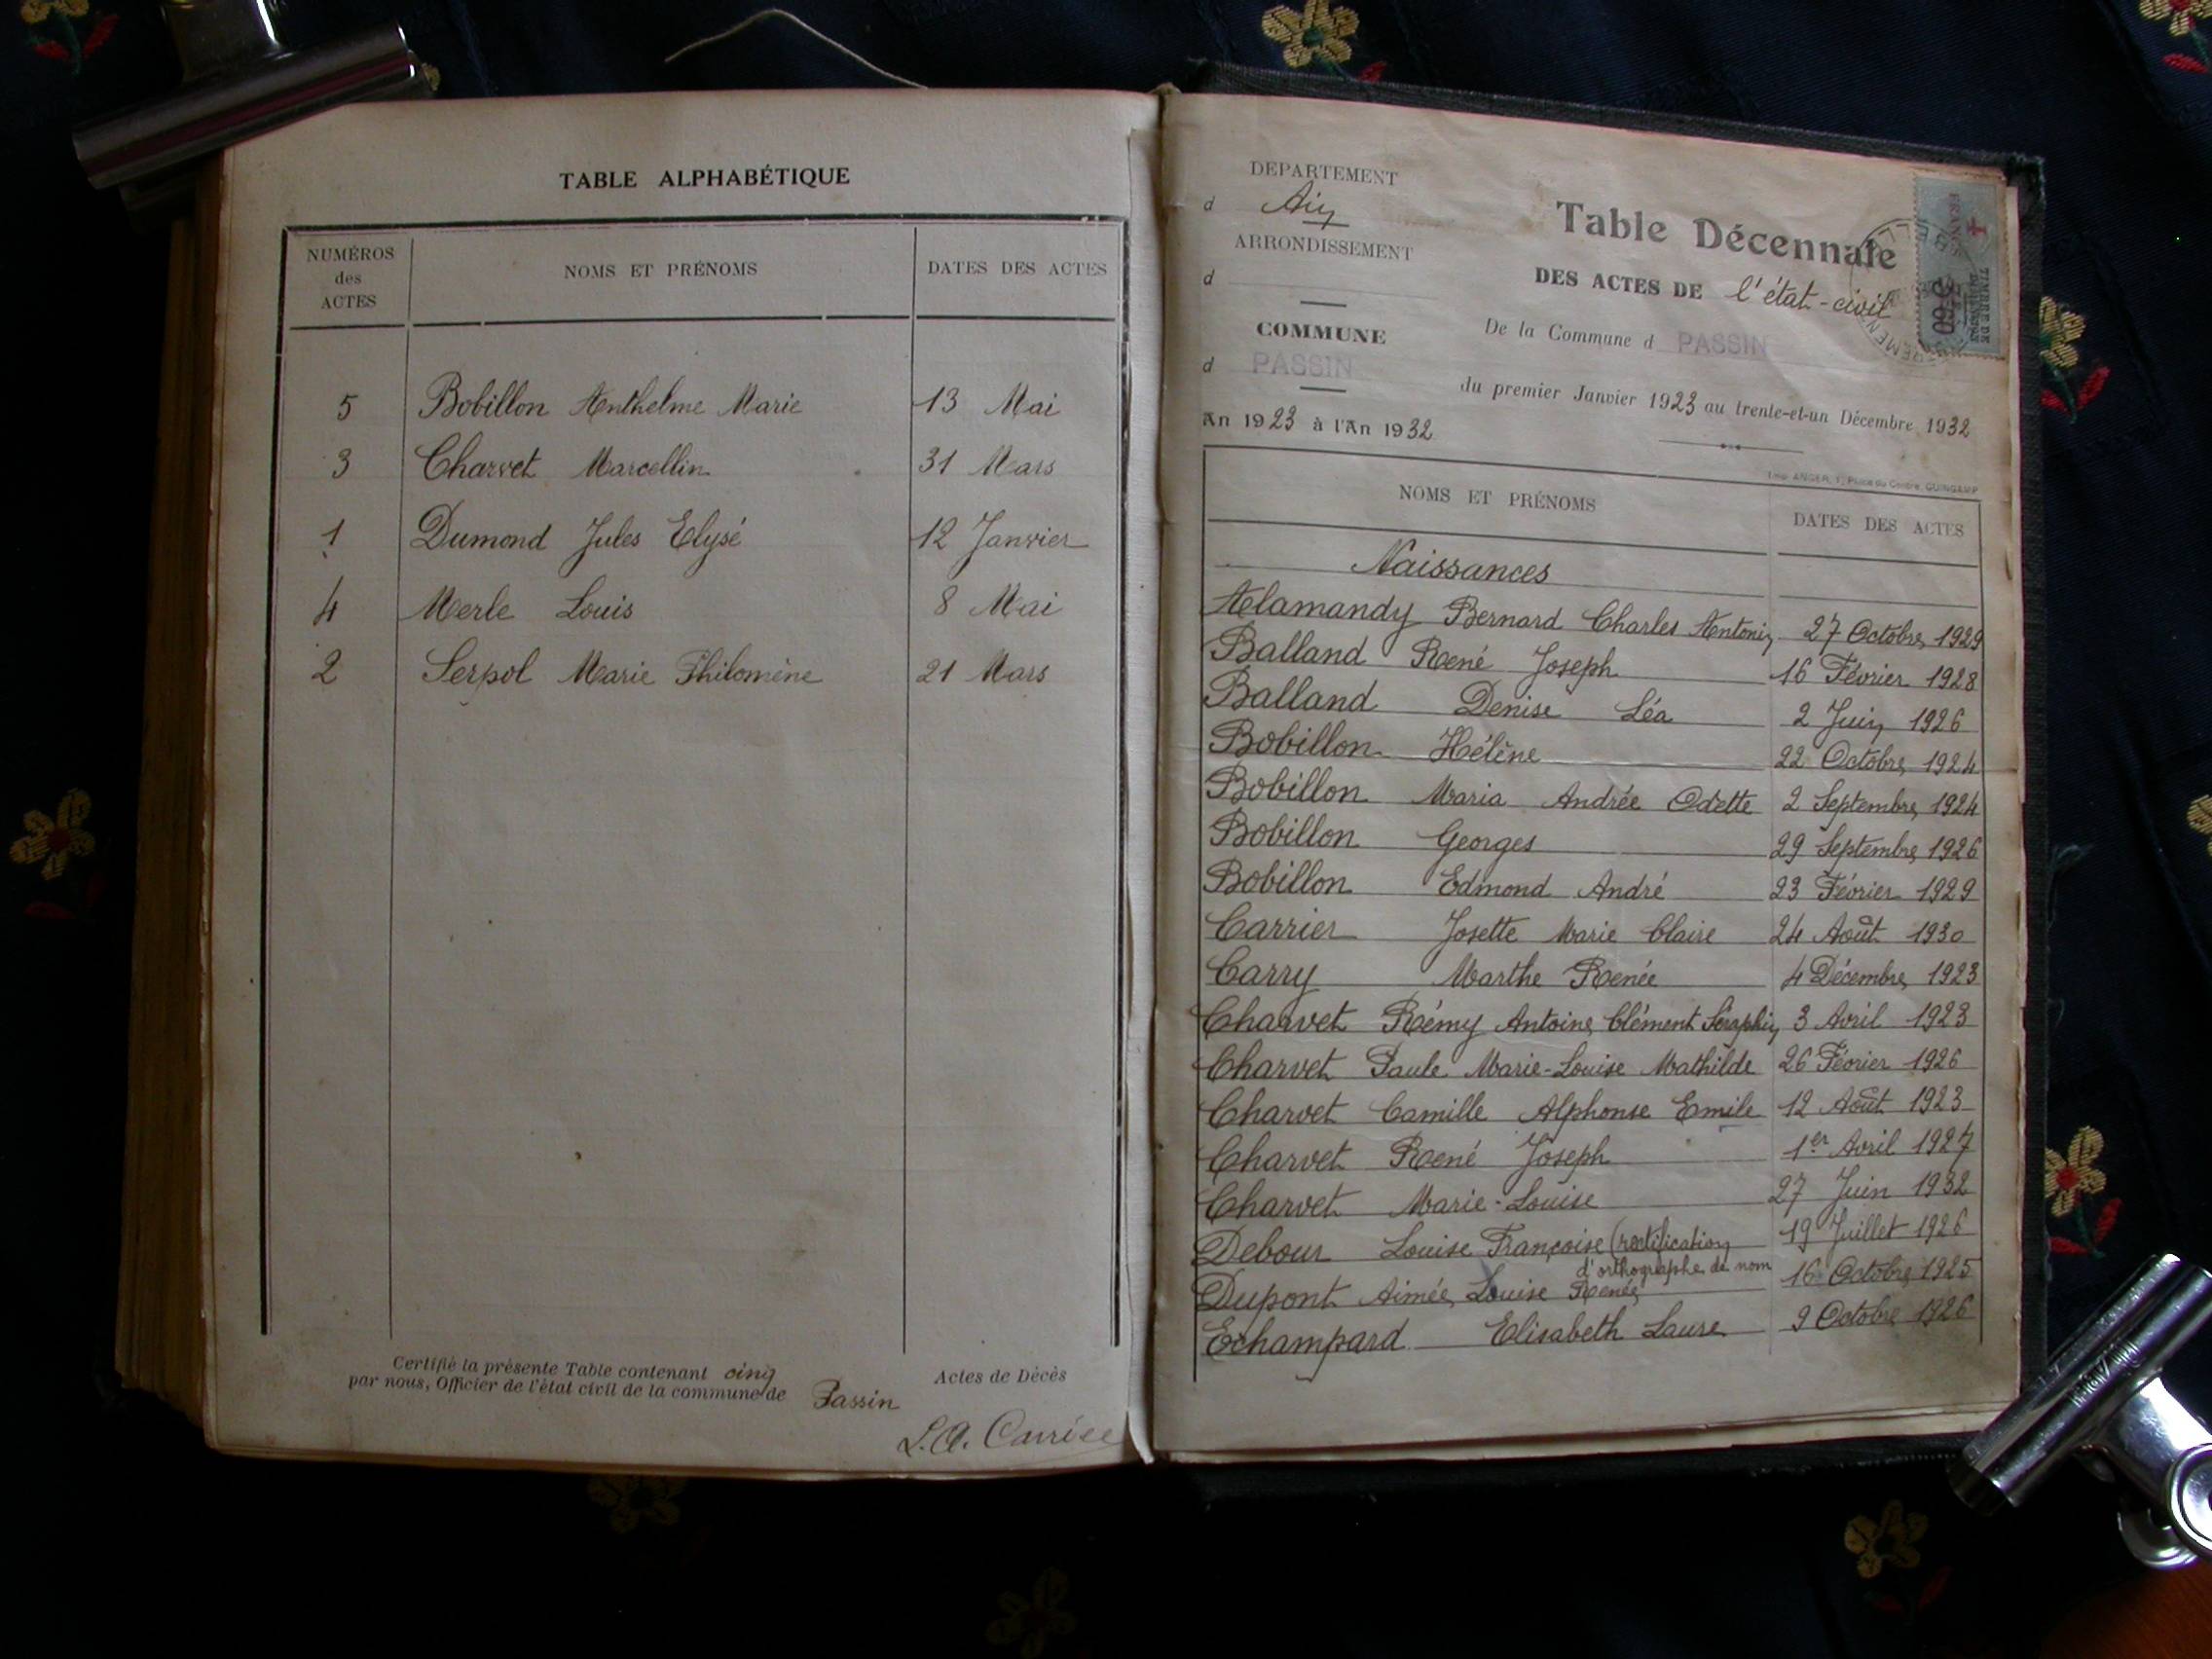 TABLE ALPHABÉTIQUE
NUMÉROS des ACTES NOMS ET PRÉNOMS DATES DES ACTES
5 Bobillon Anthelme Marie 13 Mai
3 Charvet Marcellin 31 Mars
1 Dumond Jules Elysé 12 Janvier
4 Merle Louis 8 Mai
2 Serpol Marie Philomène 21 Mars
Certifié la présente Table contenant cinq Actes de Décès
par nous, Officier de l'état civil de la commune de Passin
DEPARTEMENT
d Ain
ARRONDISSEMENT
d
COMMUNE
d PASSIN
An 1923 à l'An 1932
Table Décennale
DES ACTES DE l'état-civil
De la Commune d PASSIN
du premier Janvier 1923 au trente-et-un Décembre 1932
Imp. ANGER, 7, Place du Centre, GUINGAMP
NOMS ET PRÉNOMS DATES DES ACTES
Naissances
Alamandy Bernard Charles Antonin 27 Octobre 1929
Balland René Joseph 16 Février 1928
Balland Denise Léa 2 Juin 1926
Bobillon Hélène 22 Octobre 1924
Bobillon Maria Andrée Odette 2 Septembre 1924
Bobillon Georges 29 Septembre 1926
Bobillon Edmond André 23 Février 1929
Carrier Josette Marie Claire 24 Août 1930
Carry Marthe Renée 4 Décembre 1923
Charvet Rémy Antoine Clément Séraphin 3 Avril 1923
Charvet Paule Marie-Louise Mathilde 26 Février 1926
Charvet Camille Alphonse Emile 12 Août 1923
Charvet René Joseph 1er Avril 1927
Charvet Marie-Louise 27 Juin 1932
Debour Louise Françoise (rectification 19 Juillet 1926
d'orthographe de nom
Dupont Aimée Louise Renée 16 Octobre 1925
Echampard Elisabeth Laure 9 Octobre 1926